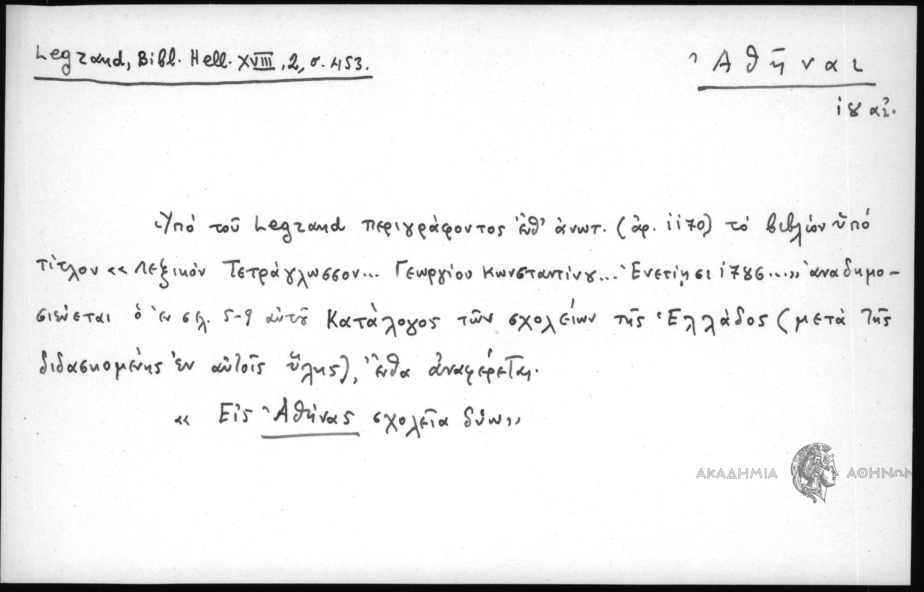 Legrand, Bibl. Hell. XVIII, 2, σ. 453.
Ἀθῆναι
ιη αἰ.
Ὑπὸ τοῦ Legrand περιγράφοντος ἐνθ' ἀνωτ. (ἀρ. 1170) τὸ βιβλίον ὑπὸ
τίτλον «Λεξικὸν Τετράγλωσσον... Γεωργίου Κωνσταντίνου... Ἐνετίῃσι 1786...» ἀναδημο-
σιεύεται ὁ ἐν σελ. 5-9 αὐτοῦ Κατάλογος τῶν σχολείων τῆς Ἑλλάδος (μετὰ τῆς
διδασκομένης ἐν αὐτοῖς ὕλης), ἔνθα ἀναφέρεται.
« Εἰς Ἀθήνας σχολεῖα δύω»
ΑΚΑΔΗΜΙΑ ΑΘΗΝΩΝ